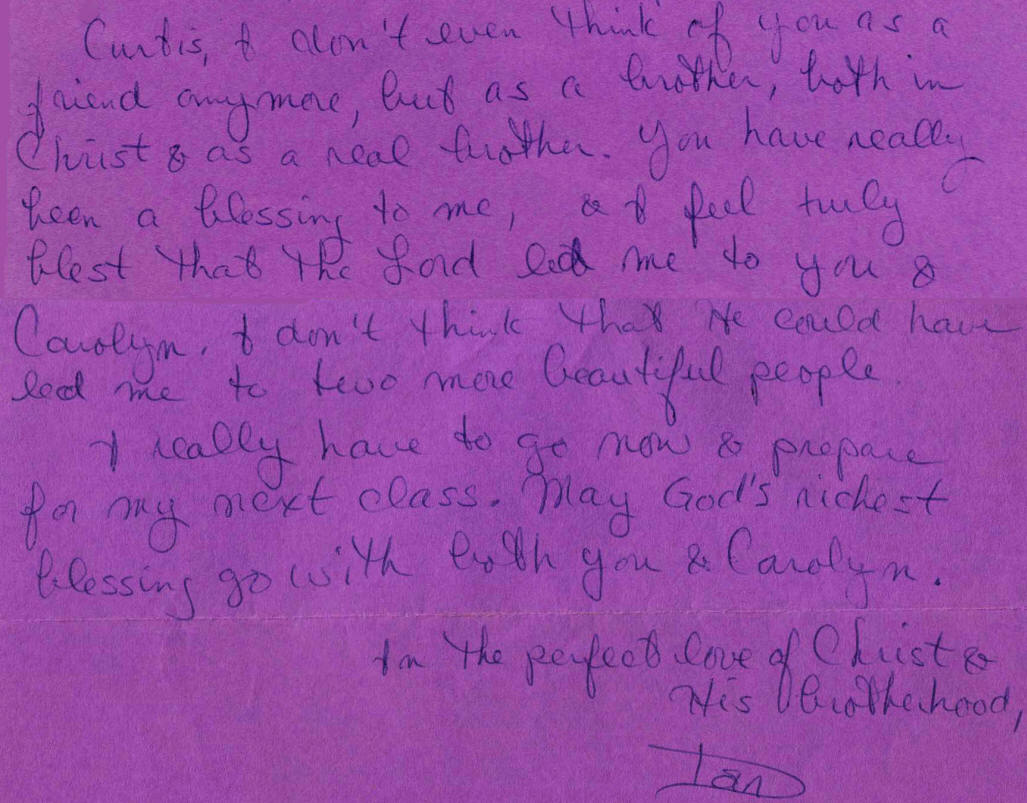 Curtis, I don't even think of you as a
friend anymore, but as a brother, both in
Christ & as a real brother. You have really
been a blessing to me, & I feel truly
blest that the Lord led me to you &
Carolyn. I don't think that He could have
led me to two more beautiful people.
I really have to go now & prepare
for my next class. May God's richest
blessing go with both you & Carolyn.
In the perfect love of Christ &
His brotherhood,
Dan